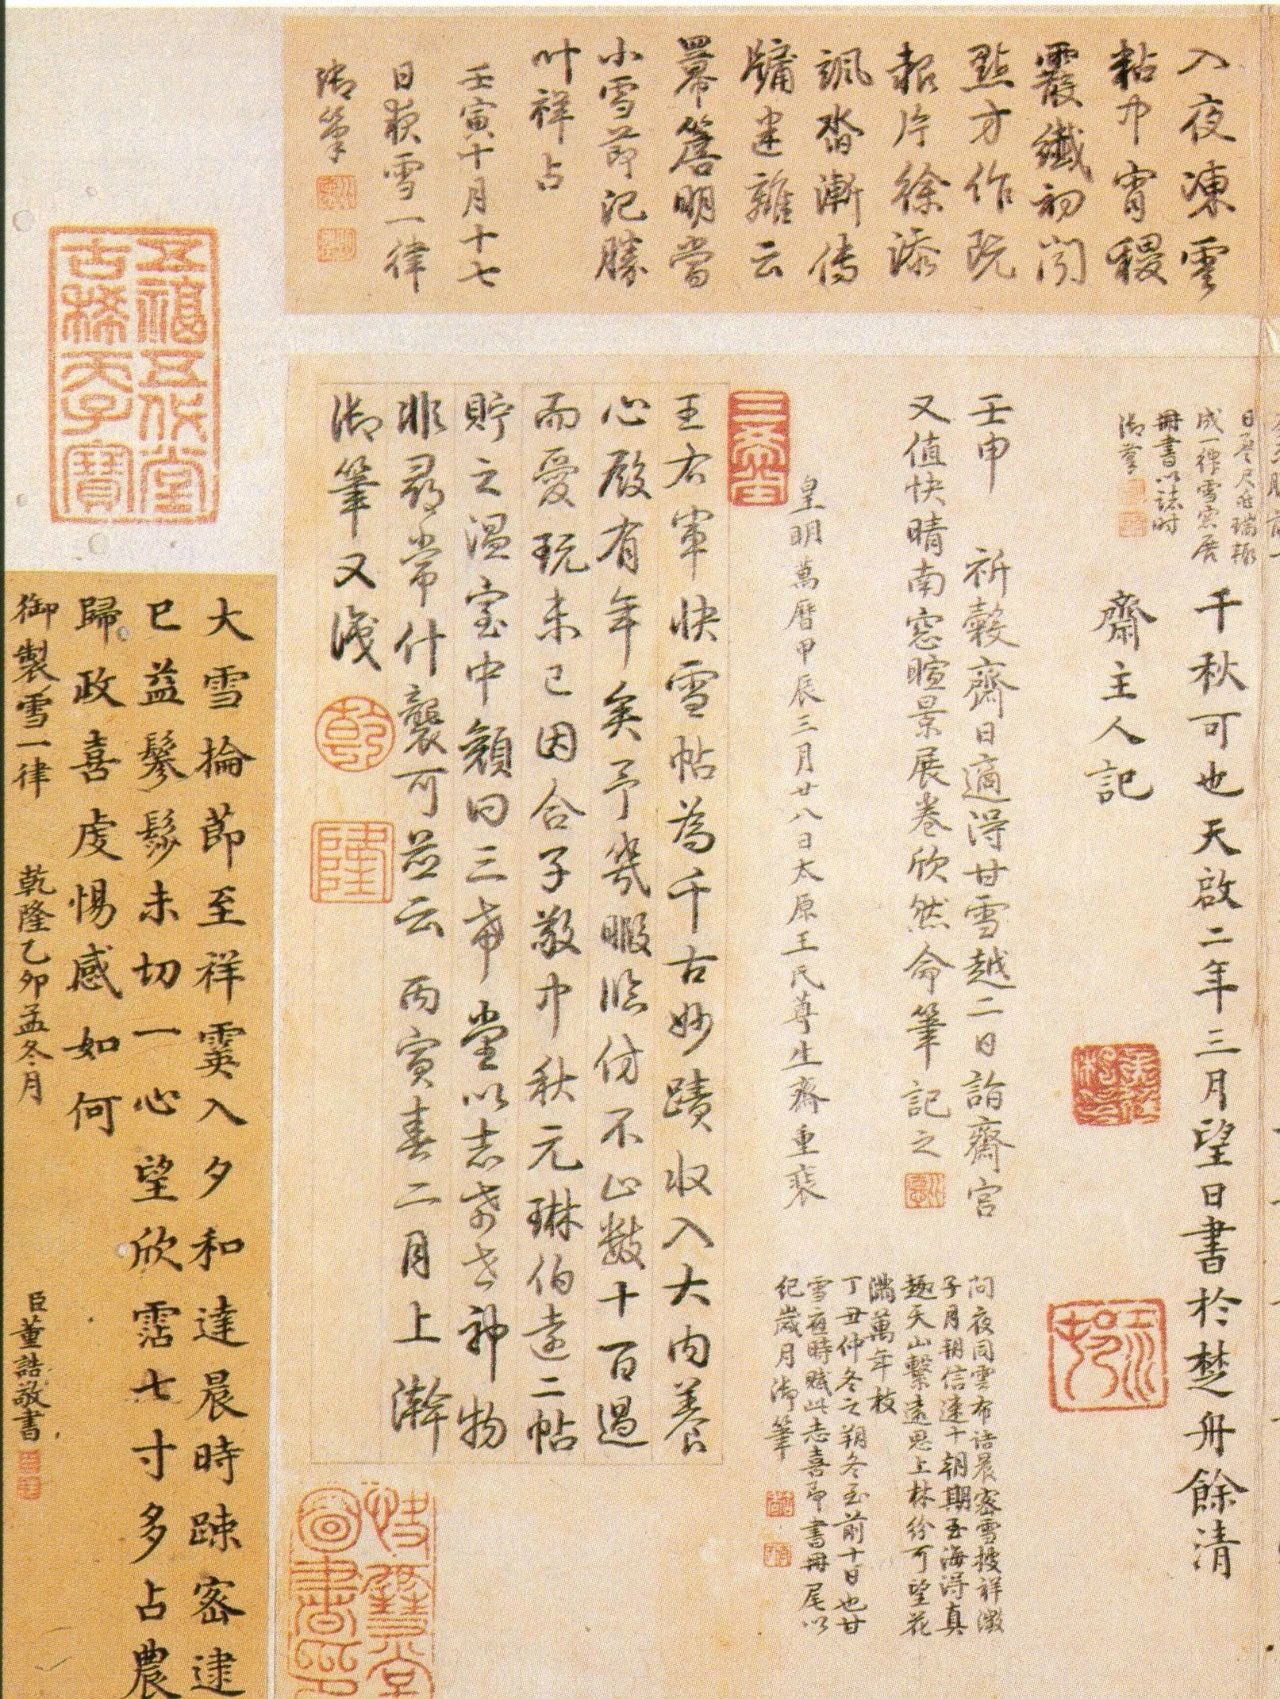 入夜凍雲
粘中宵稷
霰纖初聞
點方作既
報片徐添
颯沓漸傳
牖建離云
冪簷明當
小雪節記勝
叶祥占
壬寅十月十七
日夜雪一律
御筆
成一律雪窓展
冊書以誌時
御筆
千秋可也天啟二年三月望日書於楚舟餘清
齋主人記
壬申 祈穀齋日適得甘雪越二日詣齋宮
又值快晴南窓暄景展卷欣然命筆記之
問夜同雲布詰晨密雪披祥徵
子月朔信速十朝期玉海得真
趣天山繫遠思上林紛可望花
滿萬年枝
丁丑仲冬之朔冬至前十日也甘
雪夜時賦此志喜即書冊尾以
紀歲月御筆
皇明萬曆甲辰三月廿八日太原王氏尊生齋重裝
三希堂
王右軍快雪帖為千古妙蹟收入大內養
心殿有年矣予幾暇臨仿不止數十百過
而愛玩未已因合子敬中秋元琳伯遠二帖
貯之溫室中顏曰三希堂以志希世神物
非尋常什襲可並云 丙寅春二月上澣
御筆又識
乾
隆
五福五代堂
古稀天子寶
大雪掄節至祥霙入夕和達晨時疎密逮
已益鬖髿未切一心望欣霑七寸多占農
歸政喜虔惕感如何
御製雪一律 乾隆乙卯孟冬月 臣董誥敬書